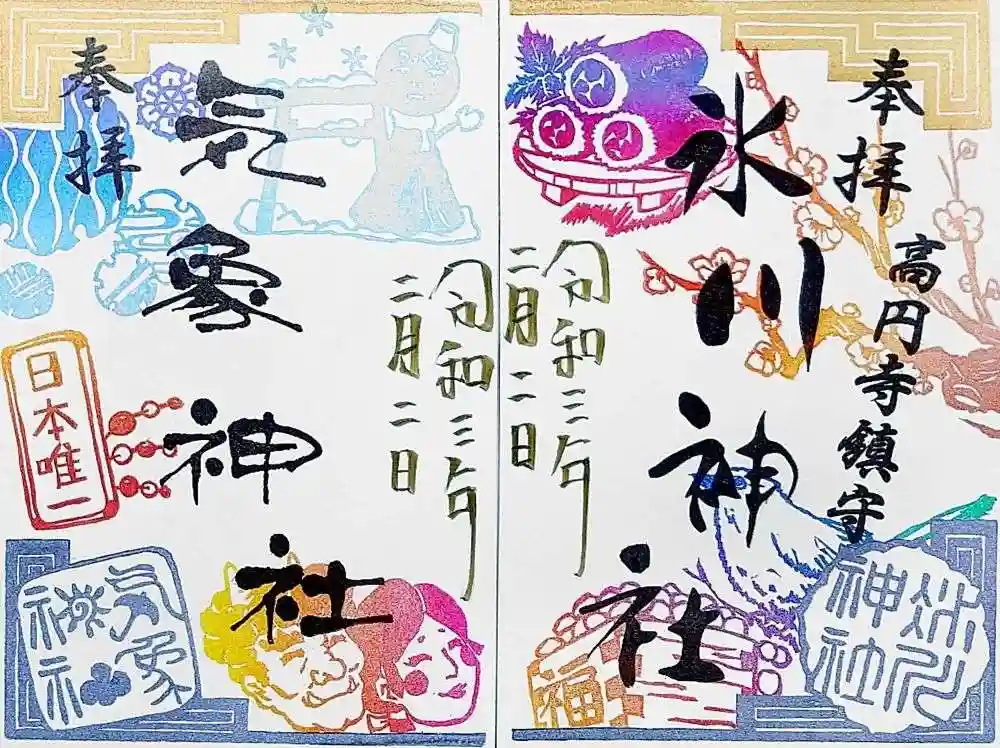 奉拝
高円寺鎮守
氷川神社
令和三年
二月二日
福
氷川神社
奉拝
気象神社
令和三年
二月二日
日本唯一
気象神社